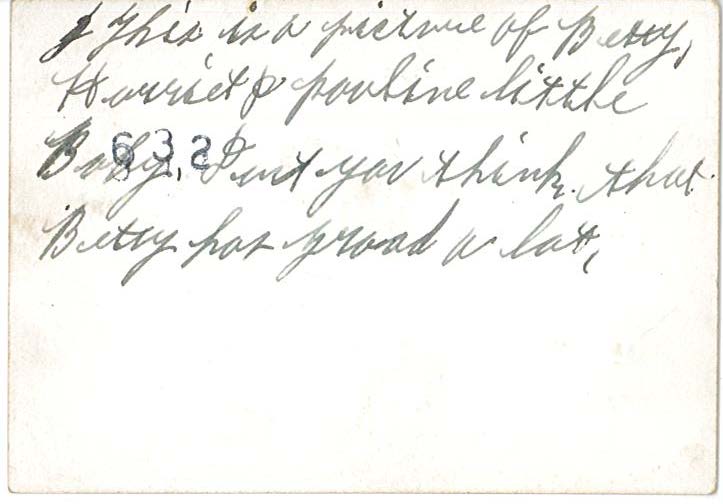 This is a picture of Betty,
Harriet & pauline little
Baby, Dont you think that
Betty has groad a lot,
632